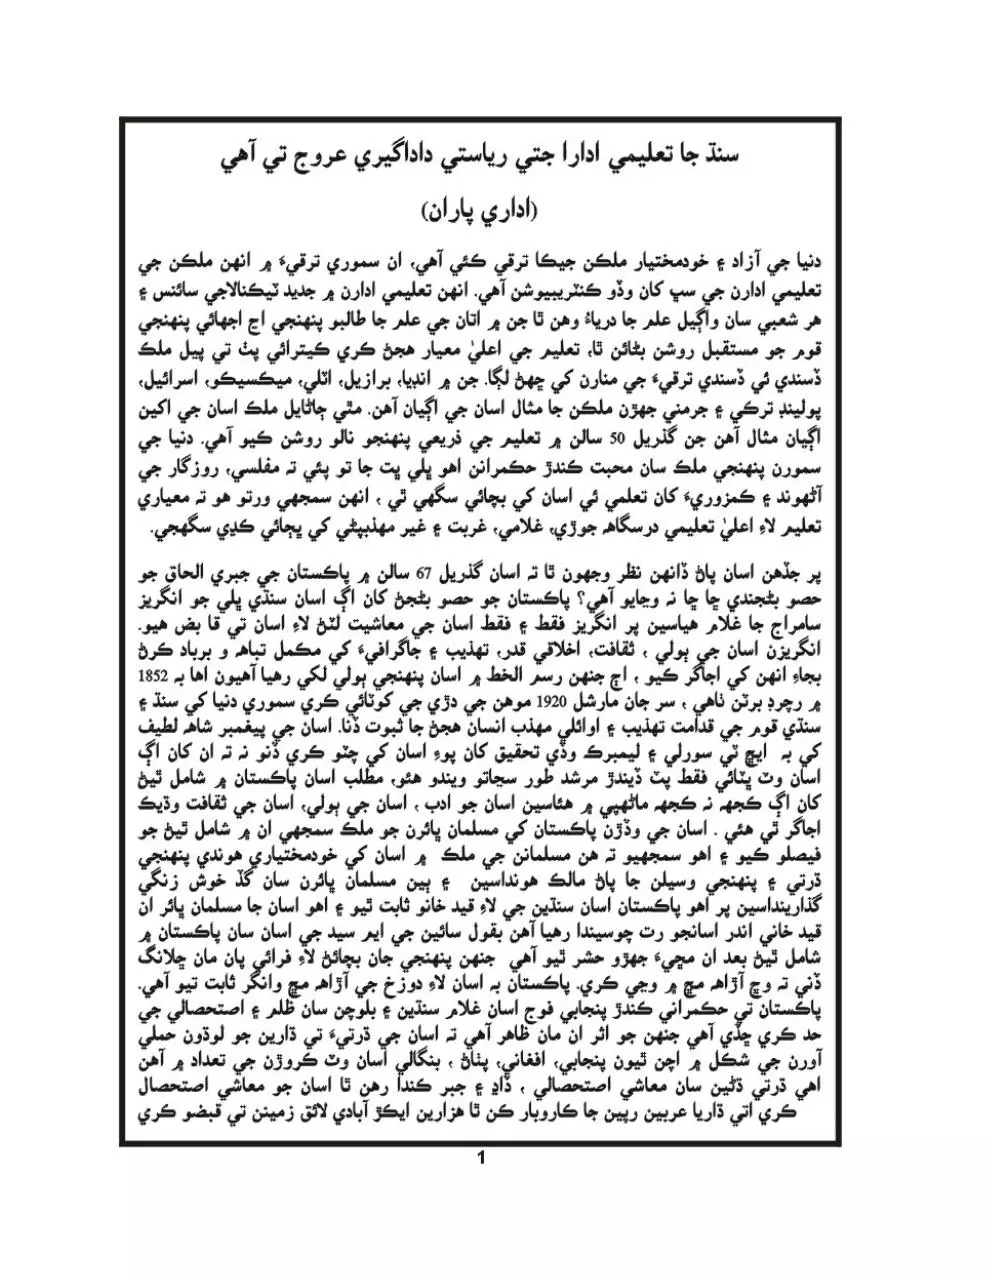 سنڌ جا تعليمي ادارا جتي رياستي داداگيري عروج تي آهي
(اداري پاران)
دنيا جي آزاد ۽ خودمختيار ملڪن جيڪا ترقي ڪئي آهي، ان سموري ترقيءَ ۾ انهن ملڪن جي
تعليمي ادارن جي سڀ کان وڏو ڪنٽريبيوشن آهي. انهن تعليمي ادارن ۾ جديد ٽيڪنالاجي سائنس ۽
هر شعبي سان واڳيل علم جا درياءُ وهن ٿا جن ۾ اتان جي علم جا طالبو پنهنجي اڄ اجهائي پنهنجي
قوم جو مستقبل روشن بڻائن ٿا، تعليم جي اعليٰ معيار هجڻ ڪري ڪيترائي پٺ تي پيل ملڪ
ڏسندي ئي ڏسندي ترقيءَ جي منارن کي ڇهڻ لڳا. جن ۾ انڊيا، برازيل، اٽلي، ميڪسيڪو، اسرائيل،
پولينڊ ترڪي ۽ جرمني جهڙن ملڪن جا مثال اسان جي اڳيان آهن. مٿي ڄاڻايل ملڪ اسان جي اکين
اڳيان مثال آهن جن گذريل 50 سالن ۾ تعليم جي ذريعي پنهنجو نالو روشن ڪيو آهي. دنيا جي
سمورن پنهنجي ملڪ سان محبت ڪندڙ حڪمرانن اهو ڀلي ڀت جا تو پئي ته مفلسي، روزگار جي
اڻهوند ۽ ڪمزوريءَ کان تعلمي ئي اسان کي بچائي سگهي ٿي ، انهن سمجهي ورتو هو ته معياري
تعليم لاءِ اعليٰ تعليمي درسگاهه جوڙي، غلامي، غربت ۽ غير مهذبپڻي کي ڀڃائي ڪڍي سگهجي.
پر جڏهن اسان پاڻ ڏانهن نظر وجهون ٿا ته اسان گذريل 67 سالن ۾ پاڪستان جي جبري الحاق جو
حصو بڻجندي ڇا ڇا نه وڃايو آهي؟ پاڪستان جو حصو بڻجڻ کان اڳ اسان سنڌي ڀلي جو انگريز
سامراج جا غلام هياسين پر انگريز فقط ۽ فقط اسان جي معاشيت لٽڻ لاءِ اسان تي قا بض هيو.
انگريزن اسان جي ٻولي ، ثقافت، اخلاقي قدر، تهذيب ۽ جاگرافيءَ کي مڪمل تباهه و برباد ڪرڻ
بجاءِ انهن کي اجاگر ڪيو ، اڄ جنهن رسم الخط ۾ اسان پنهنجي ٻولي لکي رهيا آهيون اها به 1852
۾ رچرڊ برٽن ٺاهي ، سر جان مارشل 1920 موهن جي دڙي جي کوٽائي ڪري سموري دنيا کي سنڌ ۽
سنڌي قوم جي قدامت تهذيب ۽ اوائلي مهذب انسان هجڻ جا ثبوت ڏنا. اسان جي پيغمبر شاهه لطيف
کي به ايڇ ٽي سورلي ۽ ليمبرڪ وڏي تحقيق کان پوءِ اسان کي چٽو ڪري ڏنو نه ته ان کان اڳ
اسان وٽ ڀٽائي فقط پٽ ڏيندڙ مرشد طور سڃاتو ويندو هئو، مطلب اسان پاڪستان ۾ شامل ٿيڻ
کان اڳ ڪجهه نه ڪجهه ماڻهپي ۾ هئاسين اسان جو ادب ، اسان جي ٻولي، اسان جي ثقافت وڌيڪ
اجاگر ٿي هئي . اسان جي وڏڙن پاڪستان کي مسلمان ڀائرن جو ملڪ سمجهي ان ۾ شامل ٿيڻ جو
فيصلو ڪيو ۽ اهو سمجهيو ته هن مسلمانن جي ملڪ ۾ اسان کي خودمختياري هوندي پنهنجي
ڌرتي ۽ پنهنجي وسيلن جا پاڻ مالڪ هونداسين ۽ ٻين مسلمان ڀائرن سان گڏ خوش زنگي
گذارينداسين پر اهو پاڪستان اسان سنڌين جي لاءِ قيد خانو ثابت ٿيو ۽ اهو اسان جا مسلمان ڀائر ان
قيد خاني اندر اسانجو رت چوسيندا رهيا آهن بقول سائين جي ايم سيد جي اسان سان پاڪستان ۾
شامل ٿيڻ بعد ان مڇيءَ جهڙو حشر ٿيو آهي جنهن پنهنجي جان بچائڻ لاءِ فرائي پان مان ڇلانگ
ڏني ته وڃ آڙاهه مچ ۾ وڃي ڪري. پاڪستان به اسان لاءِ دوزخ جي آڙاهه مچ وانگر ثابت تيو آهي.
پاڪستان تي حڪمراني ڪندڙ پنجابي فوج اسان غلام سنڌين ۽ بلوچن سان ظلم ۽ استحصالي جي
حد ڪري ڇڏي آهي جنهن جو اثر ان مان ظاهر آهي ته اسان جي ڌرتيءَ تي ڌارين جو لوڌون حملي
آورن جي شڪل ۾ اچن ٿيون پنجابي، افغاني، پٺاڻ ، بنگالي اسان وٽ ڪروڙن جي تعداد ۾ آهن
اهي ڌرتي ڌڻين سان معاشي استحصالي ، ڏاڍ ۽ جبر ڪندا رهن ٿا اسان جو معاشي استحصال
ڪري اتي ڌاريا عربين رپين جا ڪاروبار ڪن ٿا هزارين ايڪڙ آبادي لائق زمينن تي قبضو ڪري
1